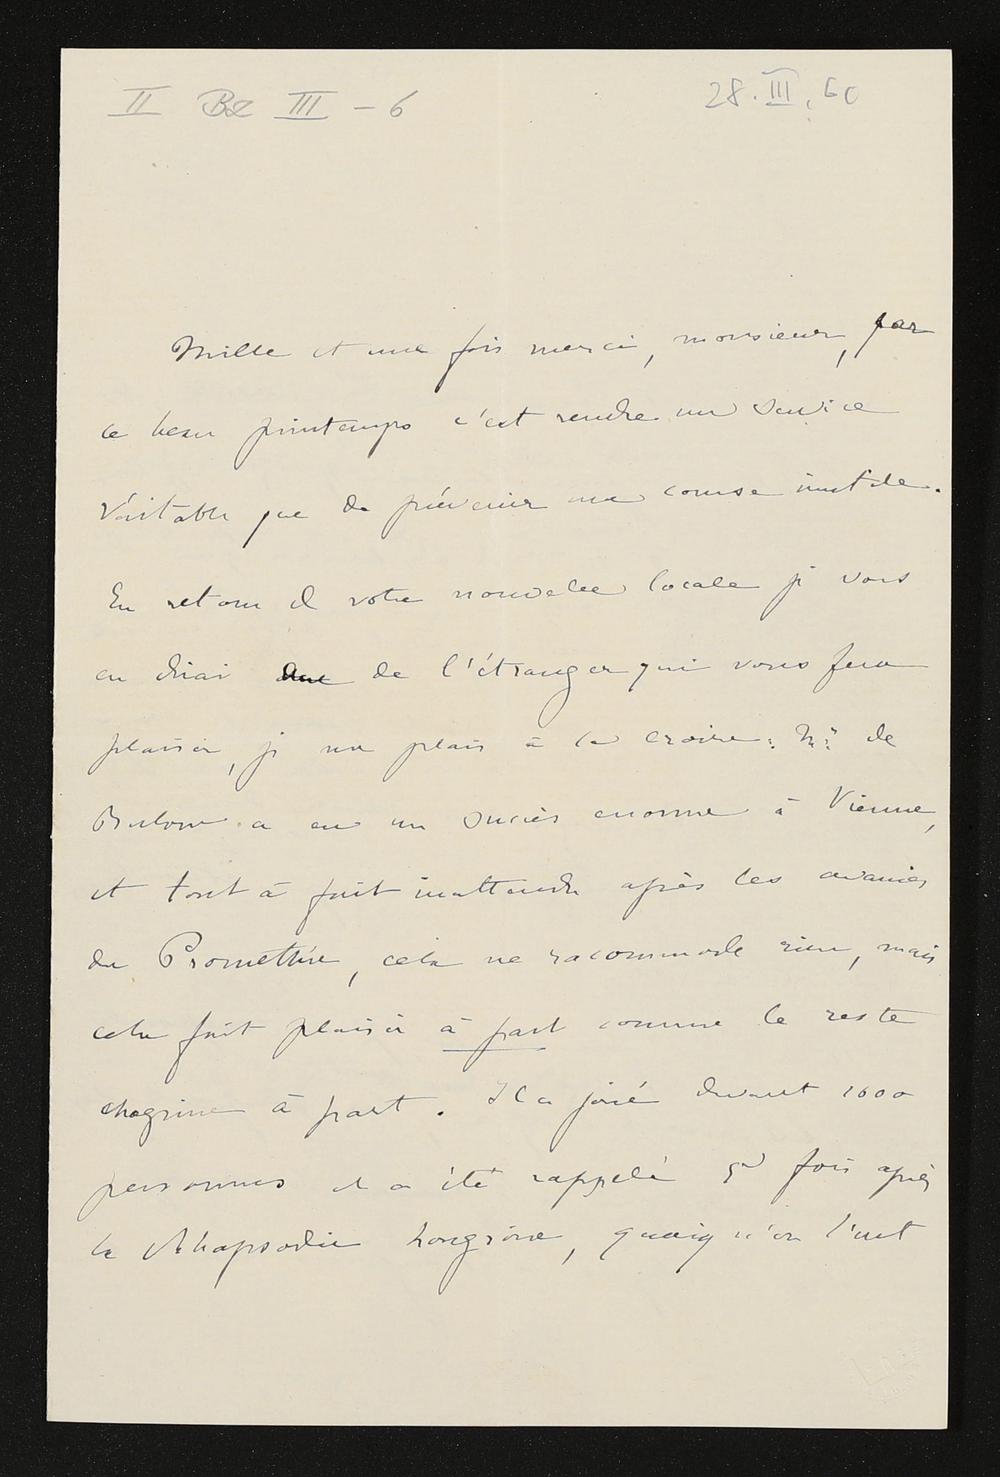 II Be III - 6
28.III.60
Mille et une fois merci, monsieur, par
ce beau printemps c'est rendre un service
véritable que de prévenir une course inutile.
En retour de votre nouvelle locale je vous
en dirai une de l'étranger qui vous fera
plaisir, je me plais à le croire: Mr de
Bulow a eu un succès enorme à Vienne,
et tout à fait inattendu après les avanies
du Prométhée, cela ne racommode rien, mais
cela fait plaisir à part comme le reste
chagrine à part. Il a joué devant 1600
personnes et a été rappelé 5 fois après
la Rhapsodie hongroise, quoiqu'on l'eut